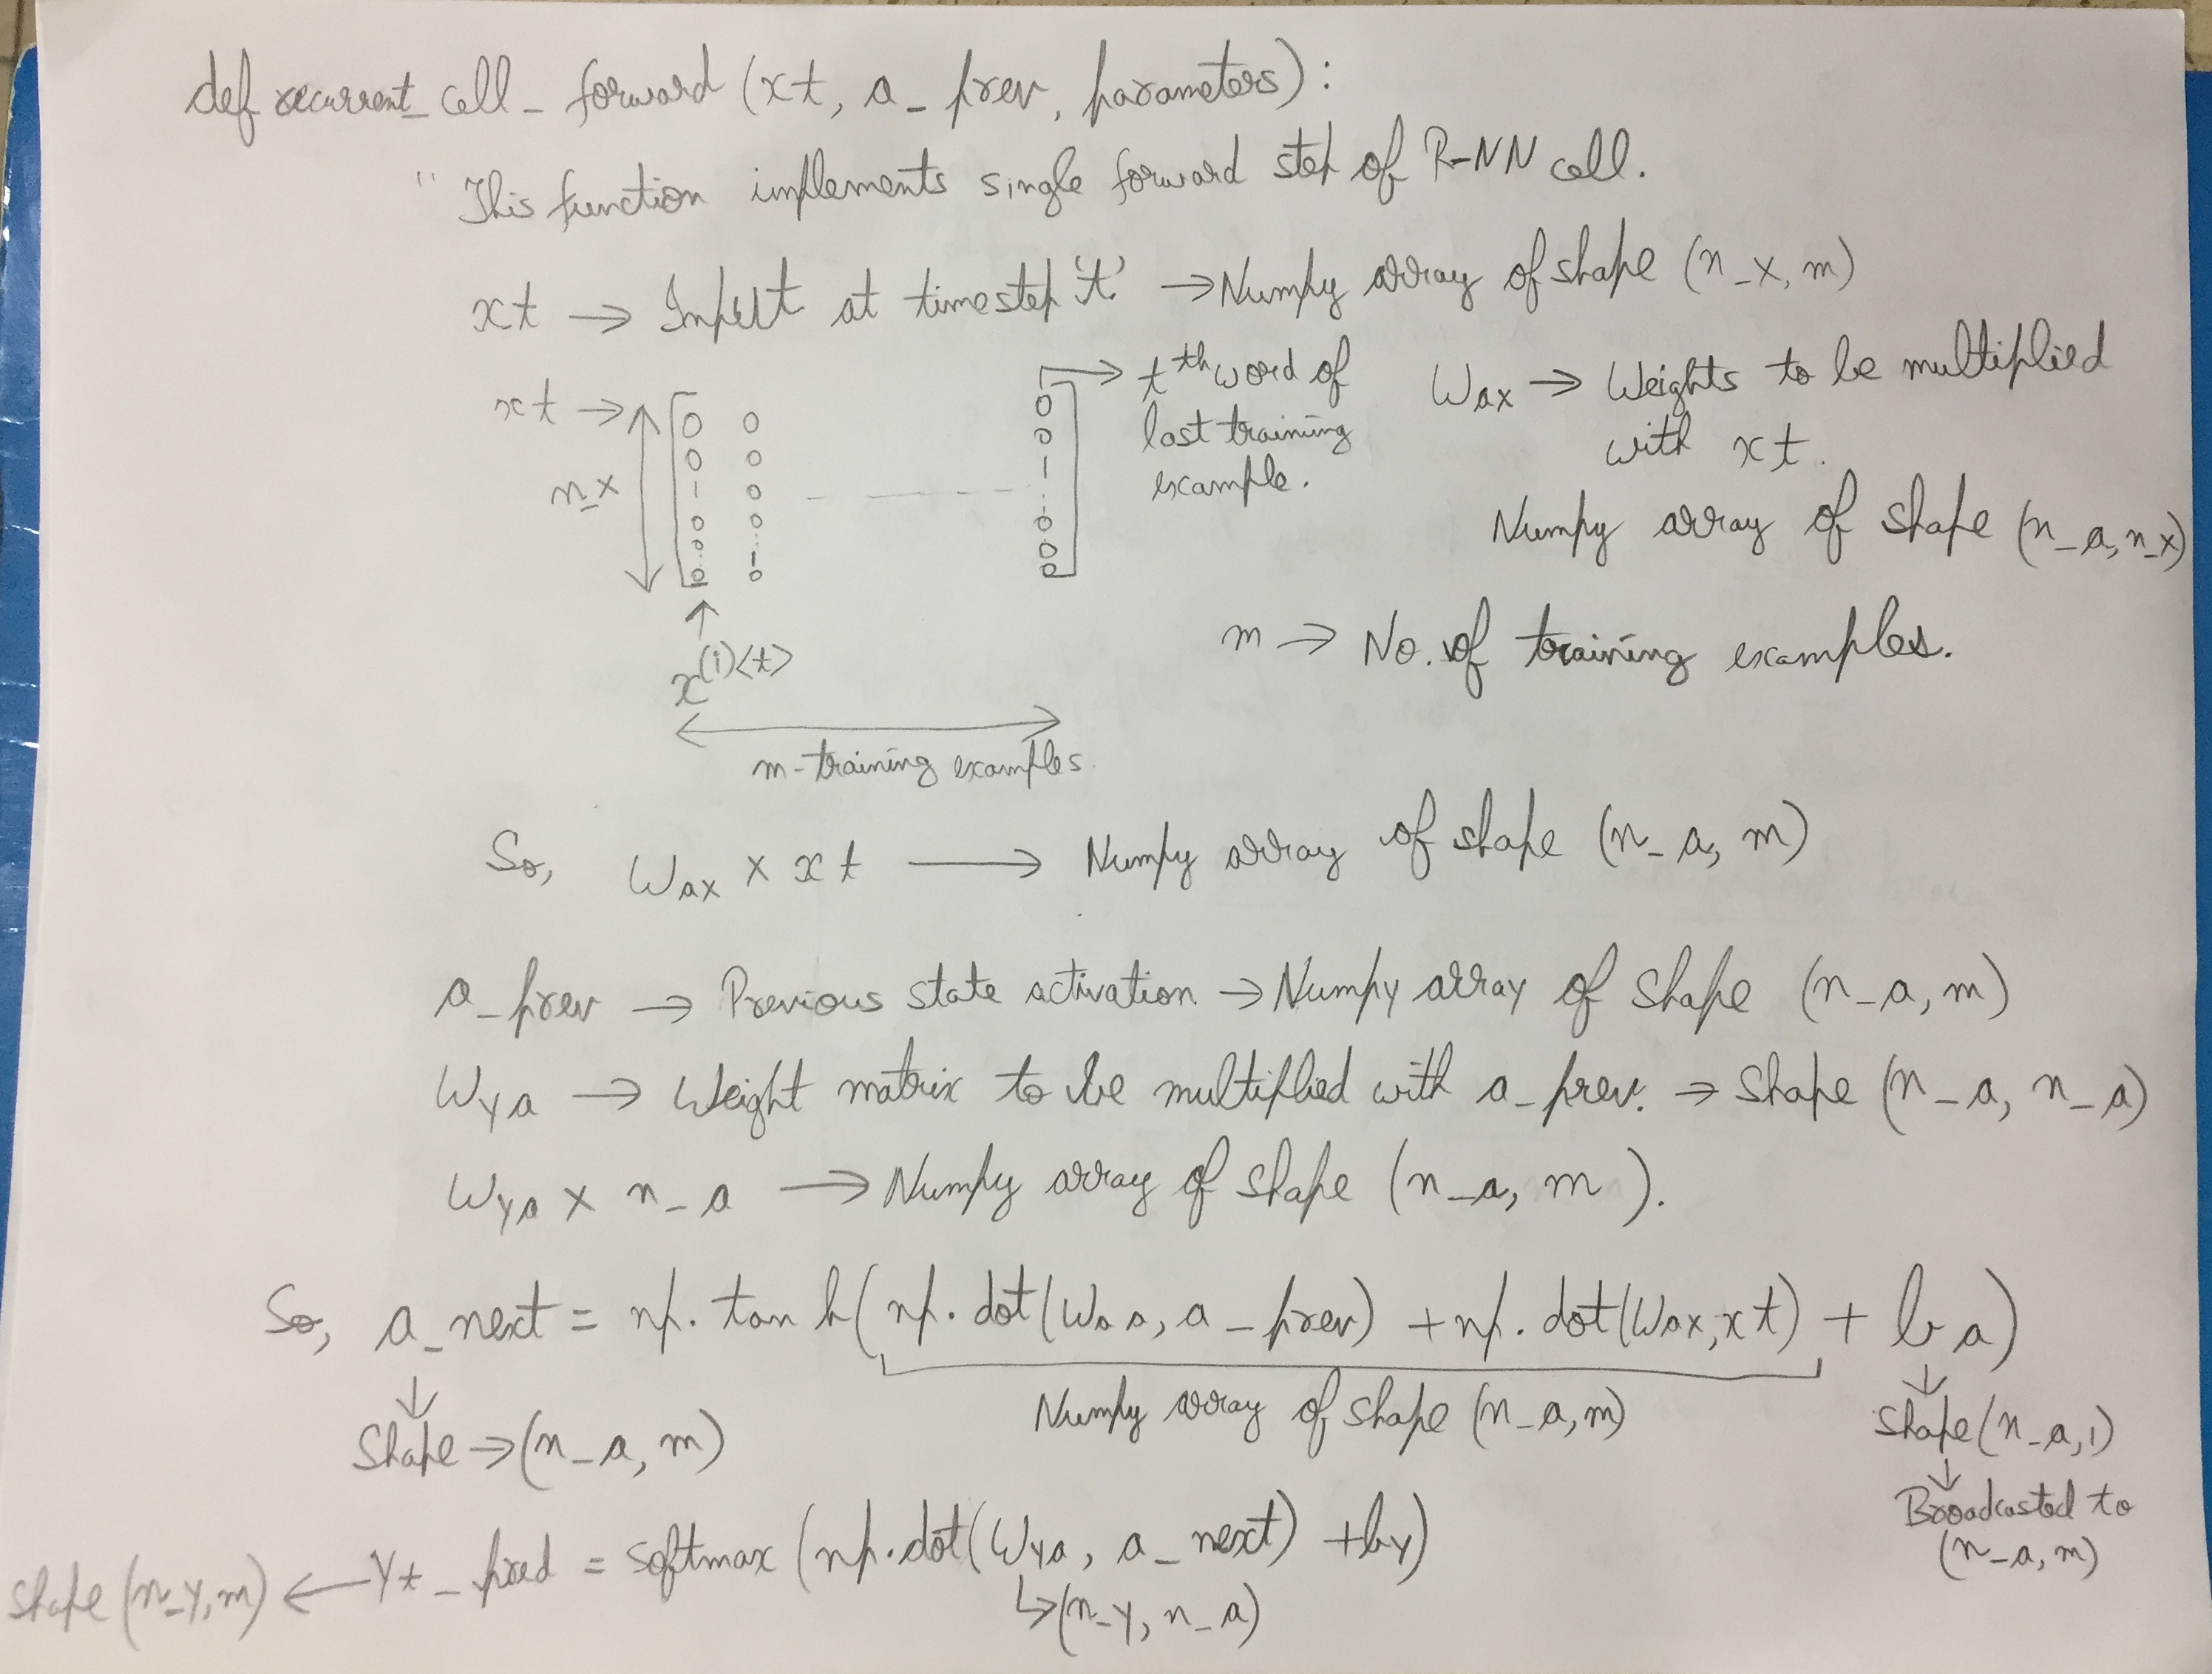 def recurrent_cell_forward (xt, a_prev, parameters):
" This function implements single forward step of R-NN cell.
xt → Input at timestep 't' → Numpy array of shape (n_x, m)
xt →
n_x
x(i)<t>
m-training examples
t th word of
last training
example.
Wax → Weights to be multiplied
with xt.
Numpy array of shape (n_a, n_x)
m → No. of training examples.
So, Wax × xt → Numpy array of shape (n_a, m)
a_prev → Previous state activation → Numpy array of shape (n_a, m)
Wya → Weight matrix to be multiplied with a_prev. → Shape (n_a, n_a)
Wya × n_a → Numpy array of shape (n_a, m).
So, a_next = np.tanh(np.dot(Waa, a_prev) + np.dot(Wax, xt) + ba)
↓
Shape → (n_a, m)
Numpy array of shape (n_a, m)
↓
Shape (n_a, 1)
↓
Broadcasted to
(n_a, m)
Shape (n_y, m) ← Yt_pred = softmax (np.dot(Wya, a_next) + by)
↳ (n_y, n_a)